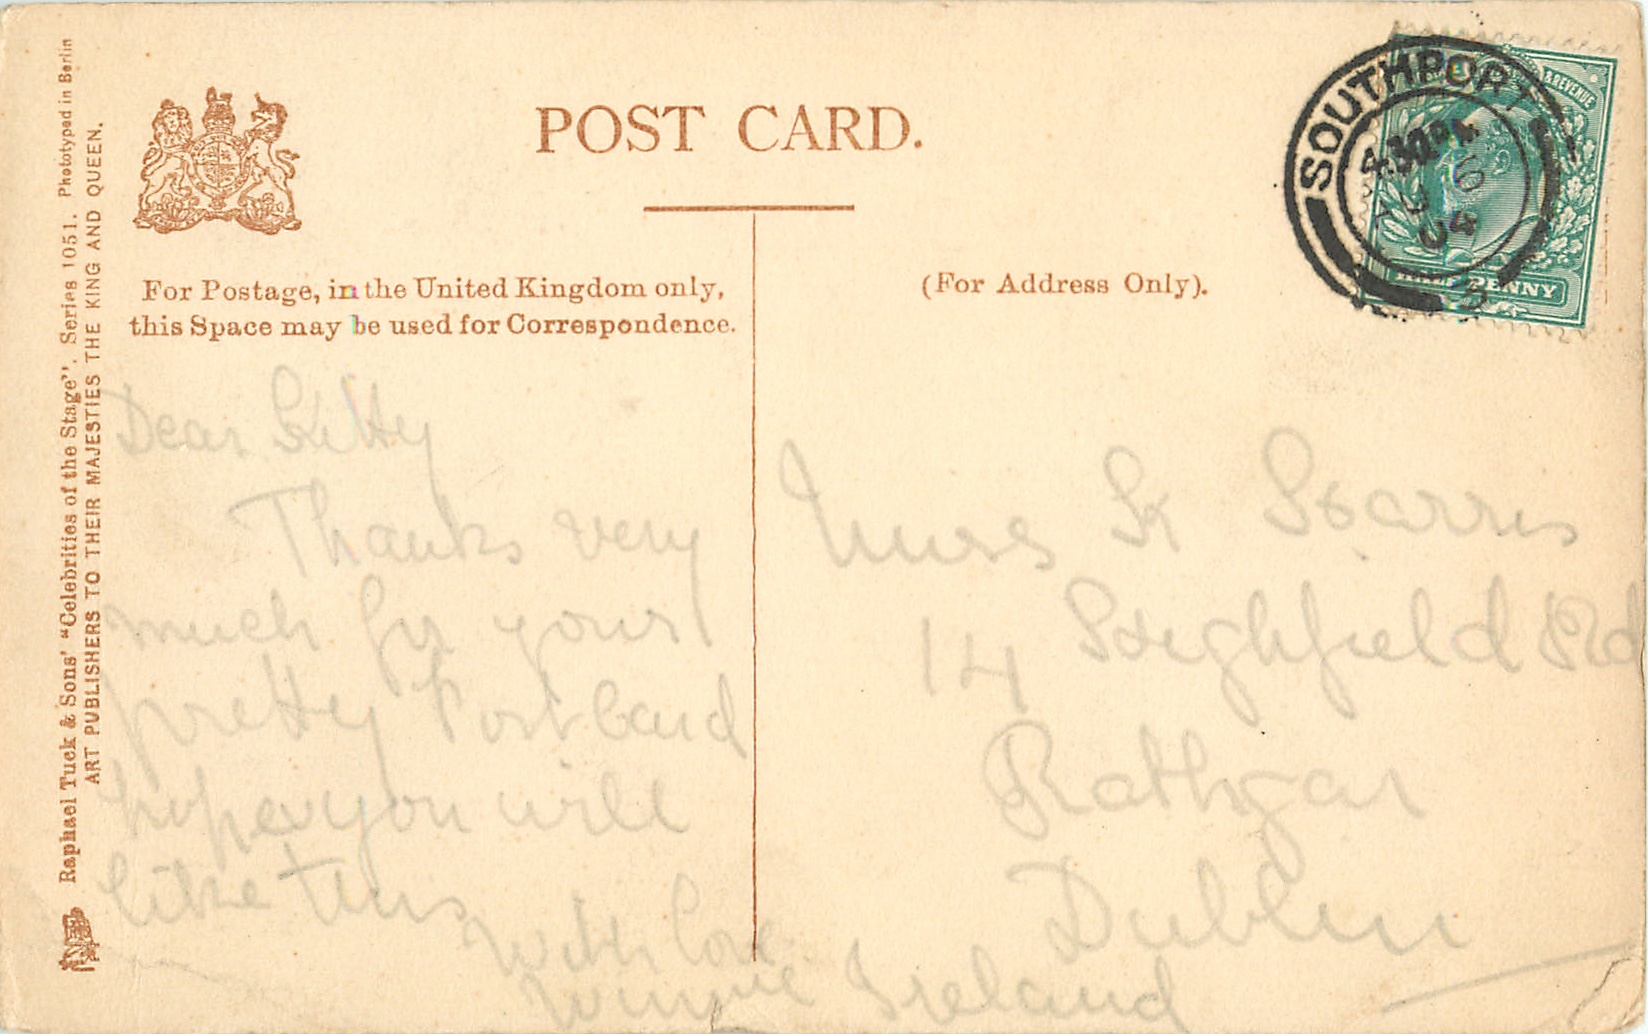 POST CARD.
For Postage, in the United Kingdom only,
this Space may be used for Correspondence.
(For Address Only).
Raphael Tuck & Sons' "Celebrities of the Stage". Series 1051. Phototyped in Berlin
ART PUBLISHERS TO THEIR MAJESTIES THE KING AND QUEEN.
SOUTHPORT
4.30 PM
& REVENUE
HALFPENNY
Dear Kitty
Thanks very
much for your
pretty Postcard
hope you will
like this
With love
Winnie
Miss K Harris
14 Highfield Rd
Rathgar
Dublin
Ireland